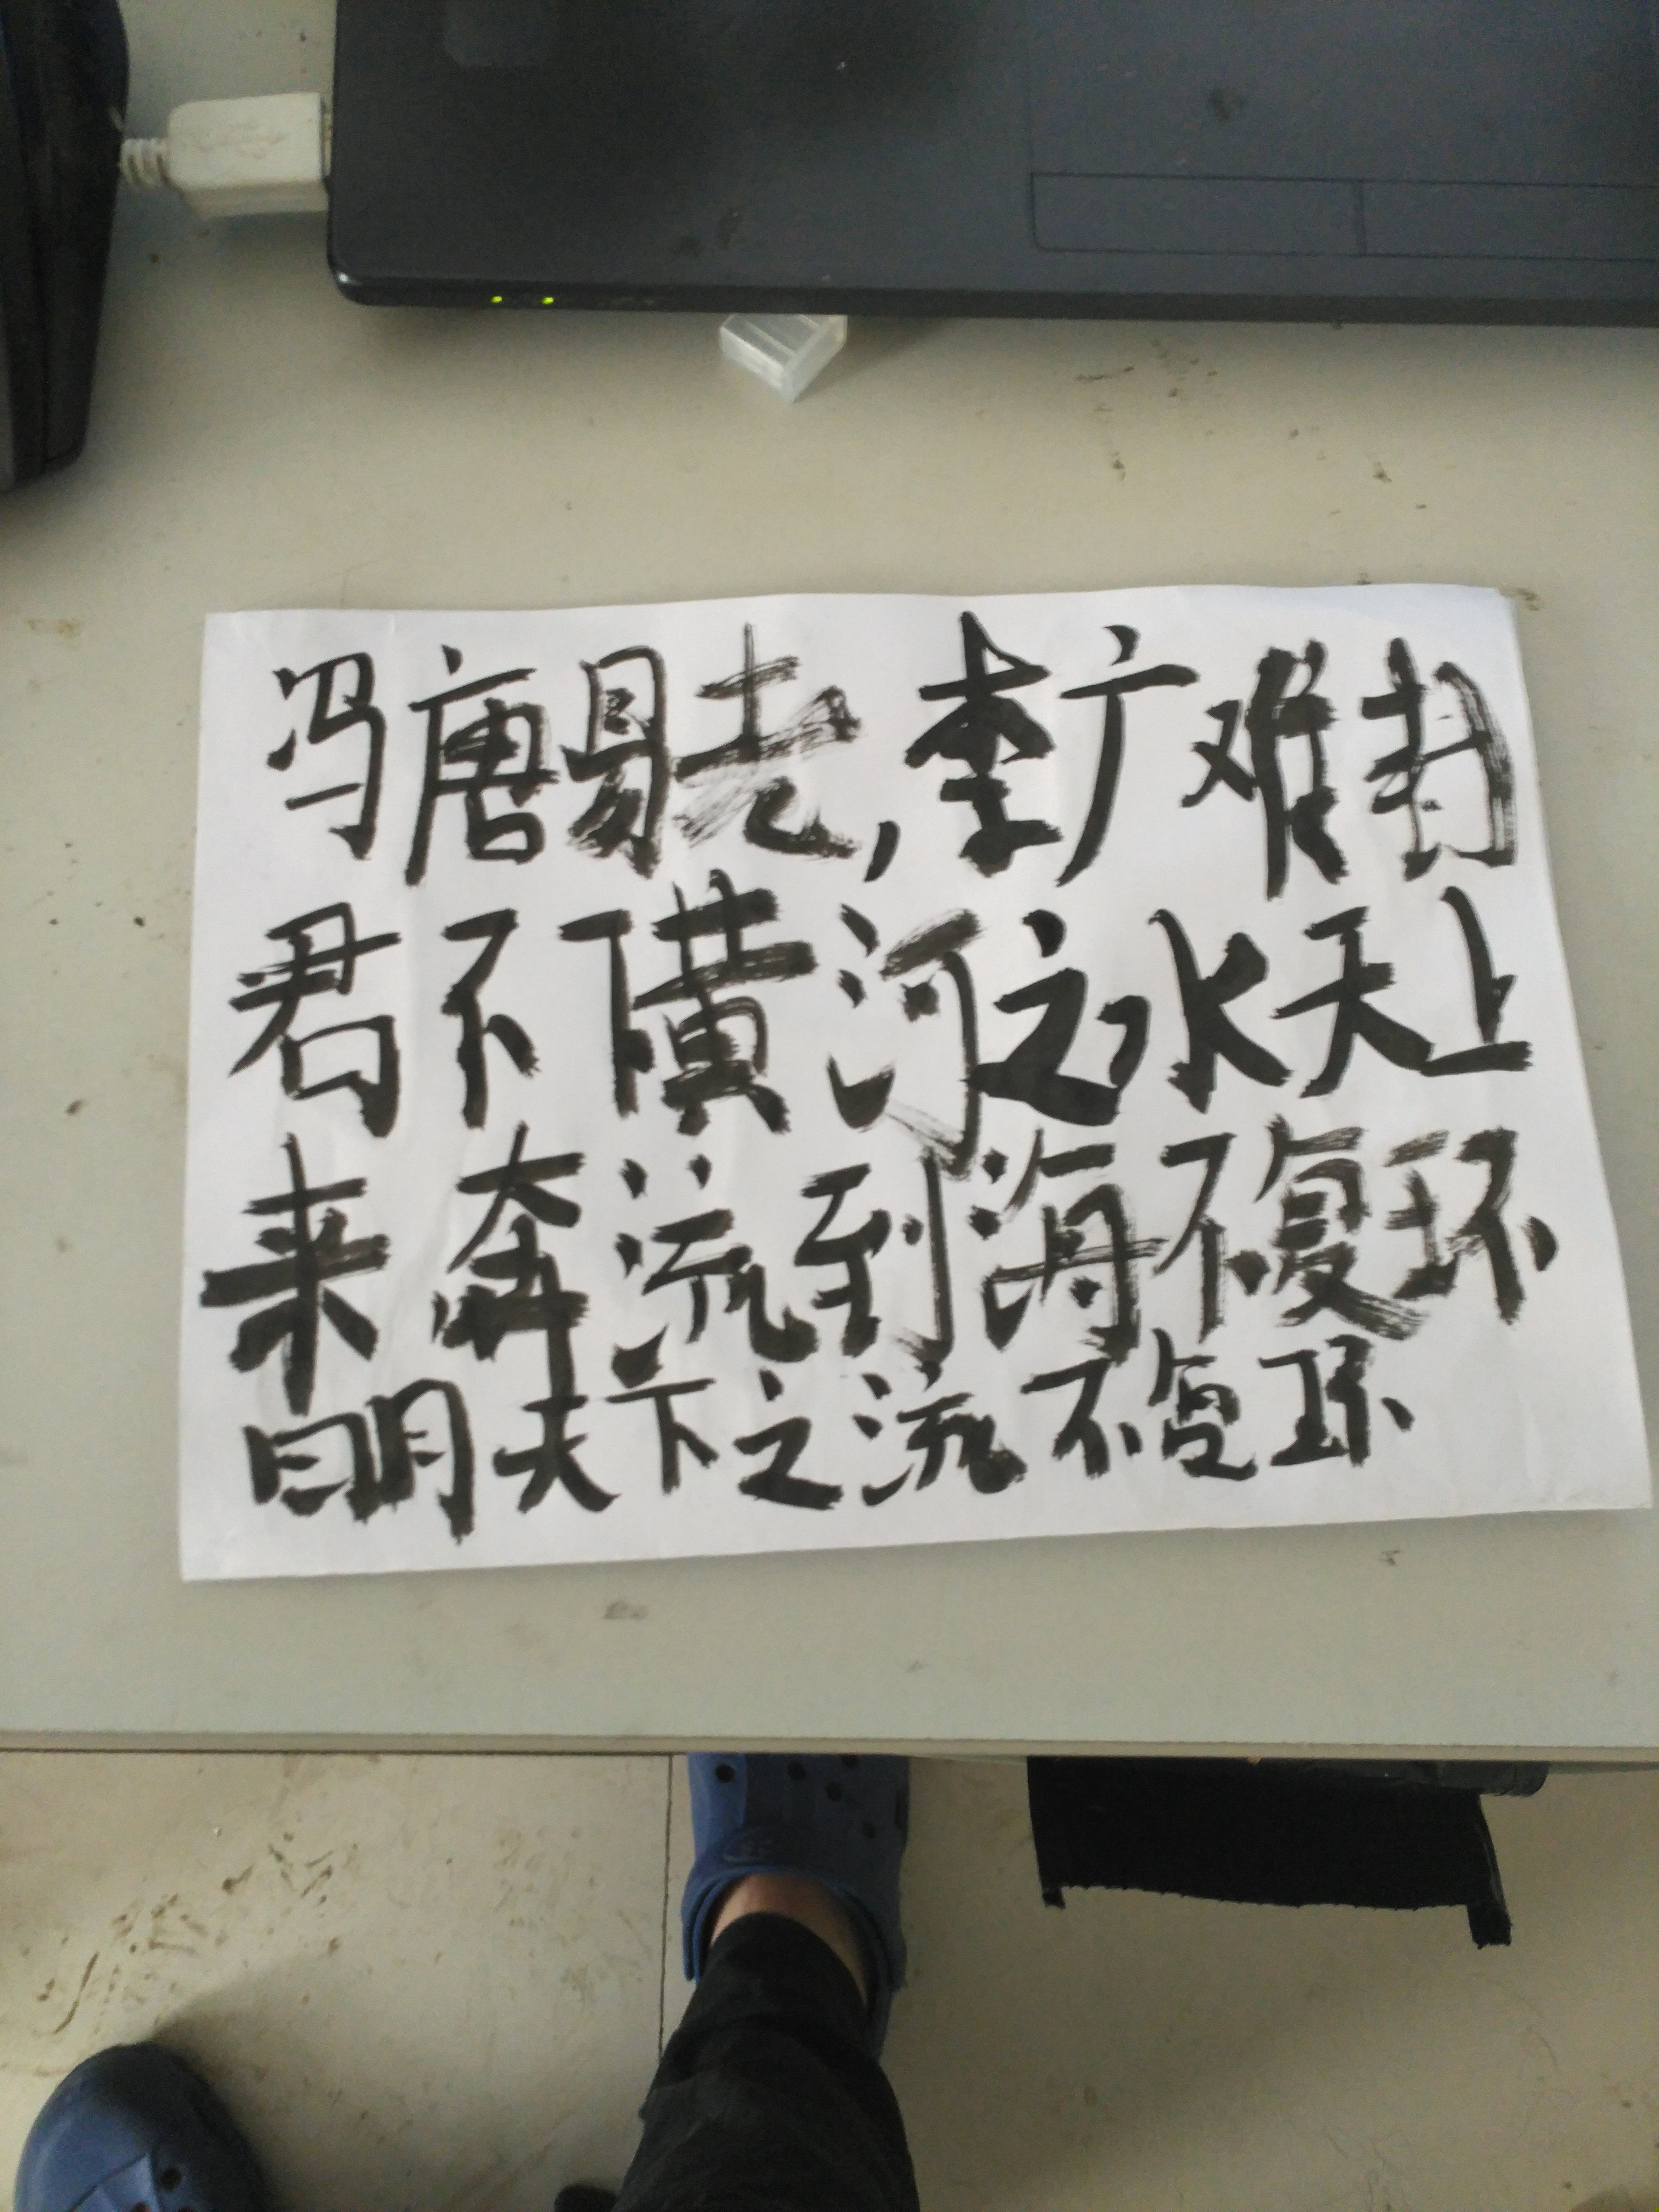 冯唐易老,李广难封
君不下黄河之水天上
来奔流到海不复环
日明天下之流不复环